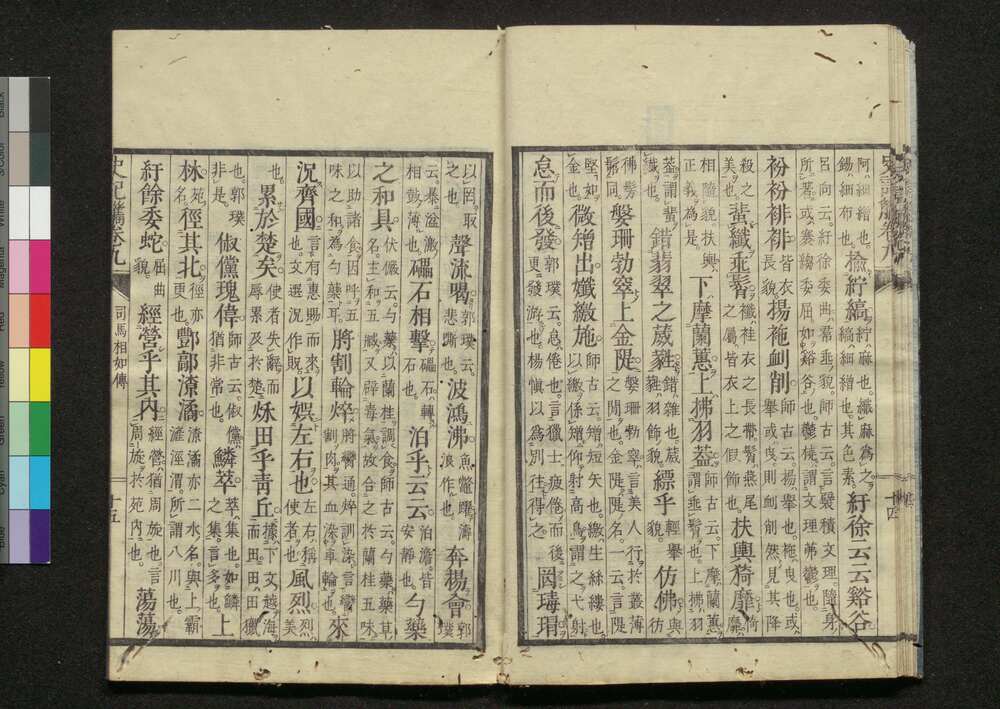 阿細繒也。錫細布也。揄紵縞紵麻也。纖麻為之。縞細繒也。其色素。紆徐云云谿谷
呂向云。紆徐委曲羃垂貌。師古云。言襞積文理。隨身所著。或褰縐委屈如谿谷也。鬱橈謂文理茀鬱也。
衯衯裶裶皆衣長貌。揚衪卹削師古云。揚舉也。衪曳也。或舉或曳。則卹削然見其降
殺之美也。蜚纖垂髾纖袿衣之長帶。髾燕尾之屬。皆衣上之假飾也。扶輿猗靡猗靡
相隨貌。扶輿正義為是。下摩蘭蕙上拂羽蓋師古云。下摩蘭蕙。謂垂髾也。上拂羽
蓋。謂蜚纖也。錯翡翠之葳蕤錯雜也。葳蕤羽飾貌。縹乎輕舉貌。仿佛仿與
佛髣髴同。媻珊勃窣上金隄媻珊勃窣。言美人行於叢薄之間也。金隄隄名。一云。言隄
堅如金也。微矰出孅繳施師古云。矰短矢也。繳生絲縷也。以繳係矰仰射高鳥。謂之弋射
怠而後發郭璞云。怠倦也。言獵士疲倦而後更發游也。楊慎以為別往得之。罔瑇瑁
以罔取之也。聲流喝郭璞云。悲嘶也。波鴻沸魚鼈躍濤浪作也。奔揚會郭璞
云。暴溢激相鼓薄也。礧石相擊礧石轉石也。泊乎云云泊澹皆安靜也。勺藥
之和具伏儼云。勺藥以蘭桂調食。師古云。勺藥藥草名。主和五臟。又辟毒氣。故合之於蘭桂五味
以助諸食。因呼五味之和為勺藥耳。將割輪焠將臠通。焠訓染。言臠割肉其血染車輪也。來
況齊國言有惠賜而來也。文選況作貺。以娛左右也左右稱使者也。風烈烈美
也。累於楚矣使者失辭而辱累及於楚。秋田乎青丘據下文越海而田。田田獵
也。郭璞非是。俶儻瑰偉師古云。俶儻猶非常也。鱗萃萃集也。如鱗之集。言多也。上
林苑名。徑其北徑亦更也。酆鄗潦潏潦潏亦二水名。與上霸滻涇渭所謂八川也。
紆餘委蛇屈曲貌。經營乎其內經營猶周旋也。言周旋於苑內也。蕩蕩
司馬相如傳
十五